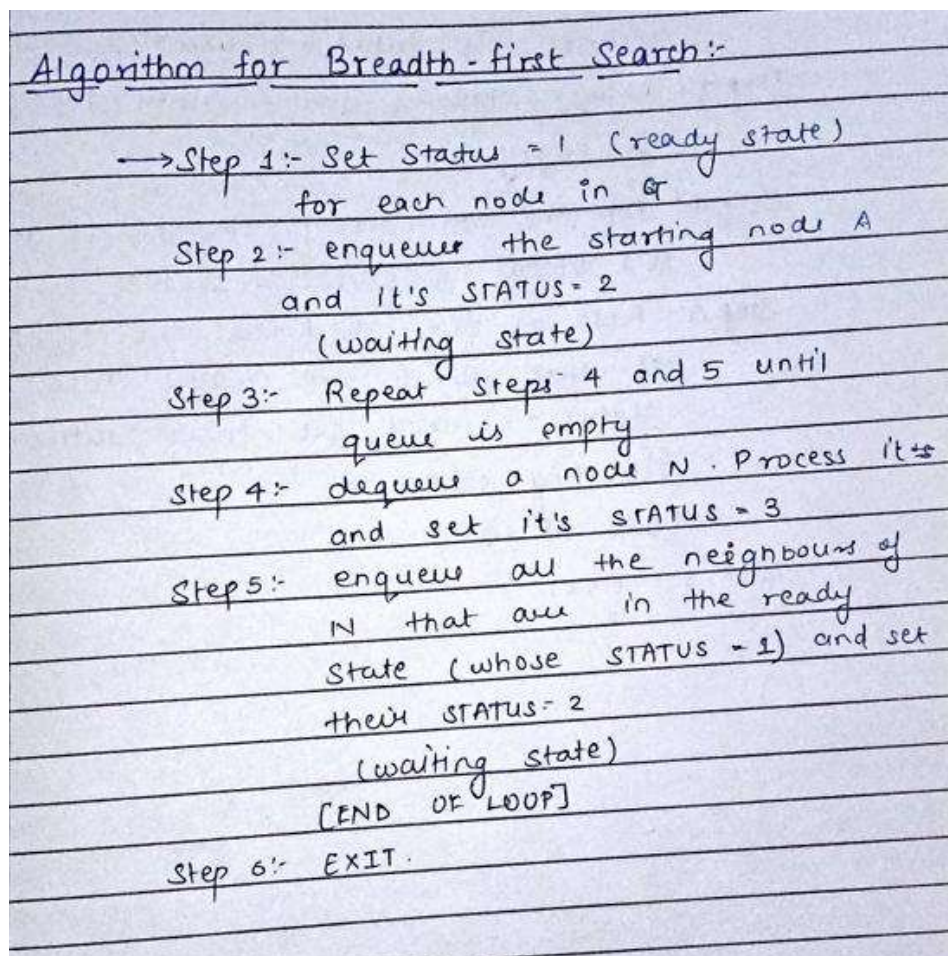 Algorithm for Breadth-first Search:-
→Step 1:- Set Status = 1 (ready state)
for each node in G
Step 2:- enqueue the starting node A
and it's STATUS = 2
(waiting state)
Step 3:- Repeat steps 4 and 5 until
queue is empty
Step 4:- dequeue a node N. Process it
and set it's STATUS = 3
Step 5:- enqueue all the neighbours of
N that are in the ready
State (whose STATUS = 1) and set
their STATUS = 2
(waiting state)
[END OF LOOP]
Step 6:- EXIT.